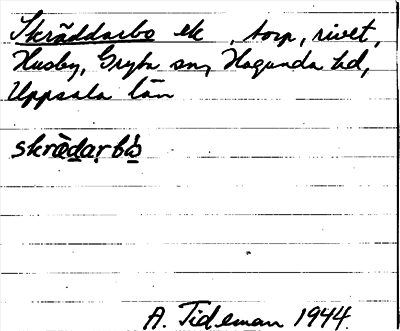 Skräddarbo ek, torp, rivet,
Husby, Gryta sn, Hagunda hd,
Uppsala län
skrädarbò
A. Tideman 1944